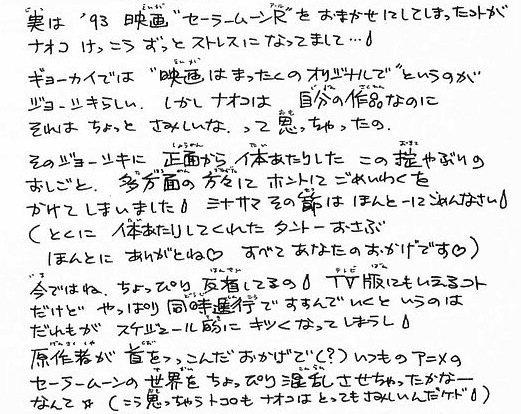 実は '93 映画 "セーラームーンR" を おまかせにしてしまったコトが
ナオコ けっこう ずっと ストレスに なってまして…
ギョーカイでは "映画 は まったくの オリジナルで" というのが
ジョーシキらしい. しかし ナオコは 自分の作品なのに
それは ちょっと さみしいな. って 思っちゃったの.
そのジョーシキに 正面から 体あたりした この 掟やぶりの
おしごと. 多方面の 方々に ホントに ごめいわくを
かけてしまいました ミナサマ その節は ほんとーにごめんなさい
(とくに 体あたりしてくれた タントー おさぶ
ほんとに ありがとね♡ すべて あなたの おかげです♡)
今ではね. ちょっぴり 反省してるの TV版にもいえるコト
だけど やっぱり 同時進行で すすんでいくと いうのは
だれもが スケジュール的に キツくなってしまうし
原作者が 首をつっこんだおかげで(?) いつもの アニメの
セーラームーンの世界を ちょっぴり 混乱 させちゃったかなー
なんて☆ (こう思っちゃうトコも ナオコは とってもさみしいんだケド)